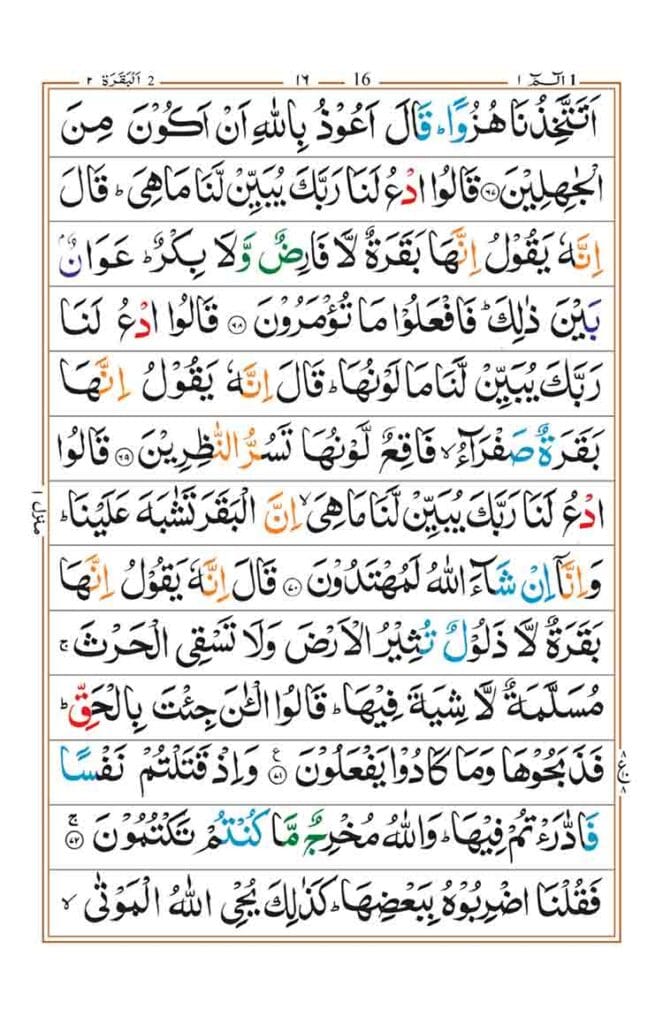 1 الٓمّٓ ١ 16 ١٦ 2 اَلْبَقَرَة ٢
اَتَتَّخِذُنَا هُزُوًا ؕ قَالَ اَعُوْذُ بِاللّٰهِ اَنْ اَكُوْنَ مِنَ
الْجٰهِلِيْنَ ﴿۶۷﴾ قَالُوا ادْعُ لَنَا رَبَّكَ يُبَيِّنْ لَّنَا مَا هِىَ ؕ قَالَ
اِنَّهٗ يَقُوْلُ اِنَّهَا بَقَرَةٌ لَّا فَارِضٌ وَّلَا بِكْرٌ ؕ عَوَانٌۢ
بَيْنَ ذٰلِكَ ؕ فَافْعَلُوْا مَا تُؤْمَرُوْنَ ﴿۶۸﴾ قَالُوا ادْعُ لَنَا
رَبَّكَ يُبَيِّنْ لَّنَا مَا لَوْنُهَا ؕ قَالَ اِنَّهٗ يَقُوْلُ اِنَّهَا
بَقَرَةٌ صَفْرَآءُ ۙ فَاقِعٌ لَّوْنُهَا تَسُرُّ النّٰظِرِيْنَ ﴿۶۹﴾ قَالُوا
ادْعُ لَنَا رَبَّكَ يُبَيِّنْ لَّنَا مَا هِىَ ۙ اِنَّ الْبَقَرَ تَشٰبَهَ عَلَيْنَا ؕ
وَاِنَّاۤ اِنْ شَآءَ اللّٰهُ لَمُهْتَدُوْنَ ﴿۷۰﴾ قَالَ اِنَّهٗ يَقُوْلُ اِنَّهَا
بَقَرَةٌ لَّا ذَلُوْلٌ تُثِيْرُ الْاَرْضَ وَلَا تَسْقِى الْحَرْثَ ۚ
مُسَلَّمَةٌ لَّا شِيَةَ فِيْهَا ؕ قَالُوا الْـٰٔنَ جِئْتَ بِالْحَقِّ ؕ
فَذَبَحُوْهَا وَمَا كَادُوْا يَفْعَلُوْنَ ﴿۷۱﴾ ع وَاِذْ قَتَلْتُمْ نَفْسًا
فَادّٰرَءْتُمْ فِيْهَا ؕ وَاللّٰهُ مُخْرِجٌ مَّا كُنْتُمْ تَكْتُمُوْنَ ۚ ﴿۷۲﴾
فَقُلْنَا اضْرِبُوْهُ بِبَعْضِهَا ؕ كَذٰلِكَ يُحْىِ اللّٰهُ الْمَوْتٰى ۙ
منزل ١
ع ٨